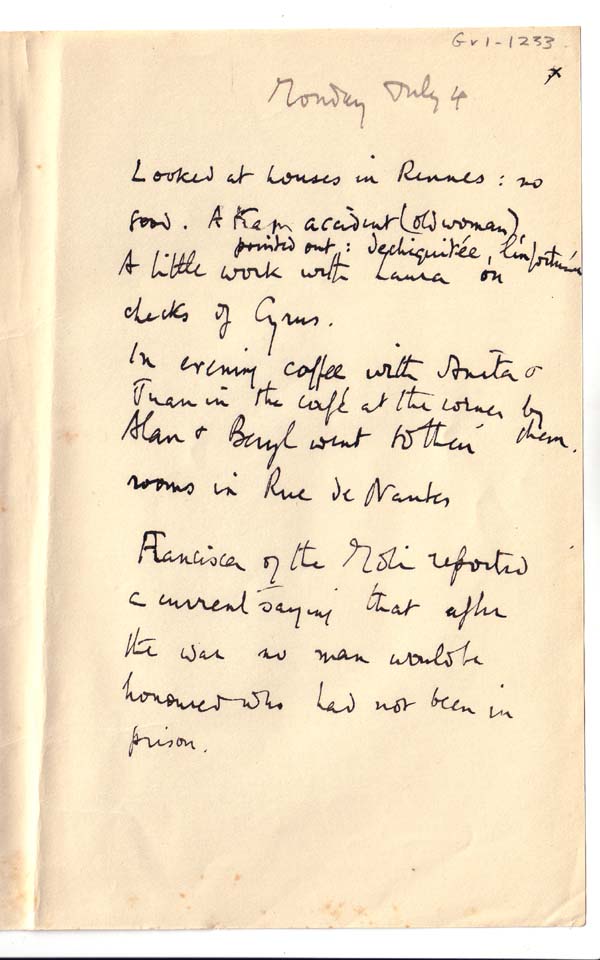 Gv1-1233
x
Monday July 4
Looked at houses in Rennes : no
good. A tram accident (old woman),
pointed out : déchiquetée, l'infortunée
A little work with Laura on
checks of Cyrus.
In evening coffee with Anita &
Juan in the café at the corner by
them.
Alan & Beryl went to their
rooms in Rue de Nantes
Francisca of the Moli reported
a current saying that after
the war no man would be
honoured who had not been in
prison.